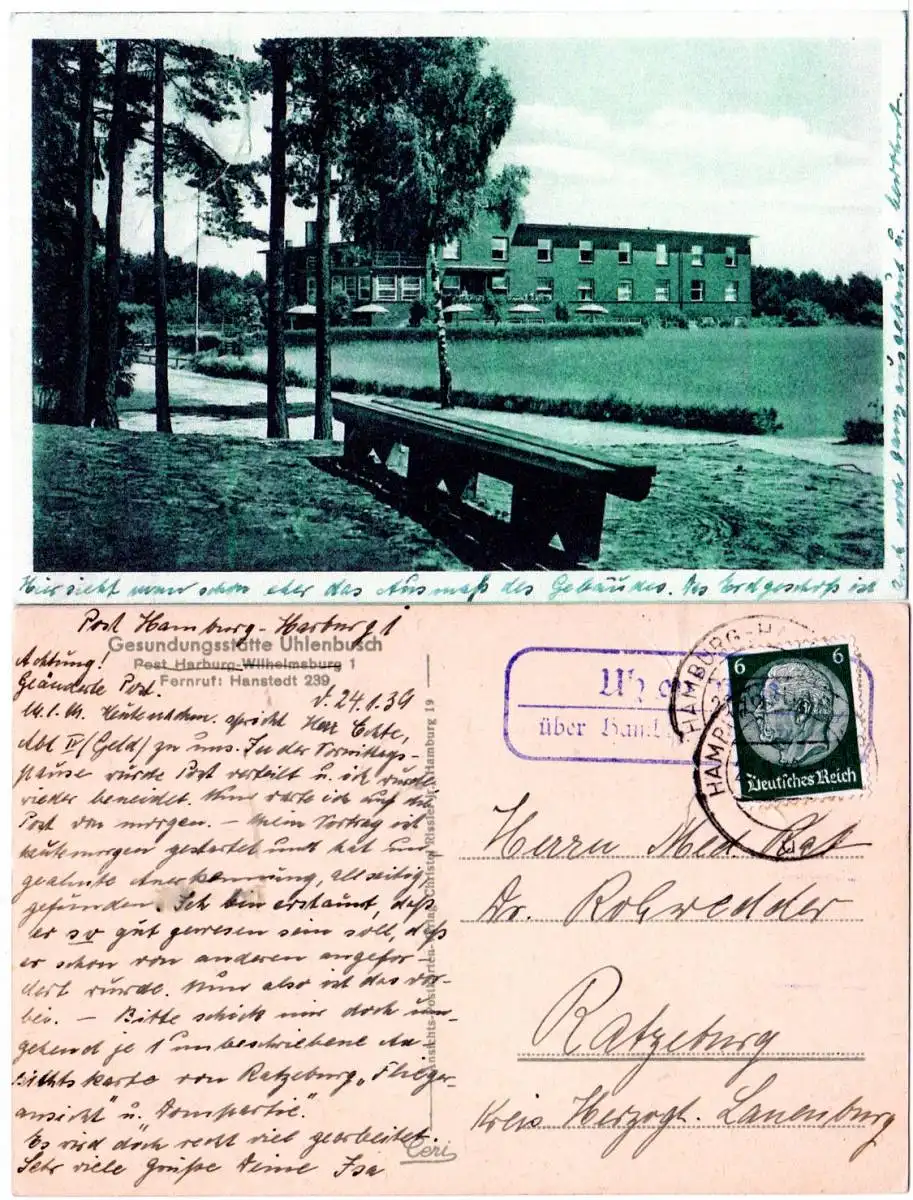 Hier sieht man schon eher das Ausmaß des Gebäudes. Das Erdgeschoß ist
noch ganz ausgebaut u. bewohnt.
Post Hamburg-Harburg 1
Gesundungsstätte Uhlenbusch
Post Harburg-Wilhelmsburg 1
Fernruf: Hanstedt 239
Achtung!
Geänderte Post.
d. 24.1.39
M.l.M. Heutenachm. spricht Herr Echte,
Abt IV (Geld) zu uns. In der Vormittags-
pause wurde Post verteilt u. ich wurde
wieder beneidet. Nun warte ich auf die
Post von morgen. – Mein Vortrag ist
heutemorgen gestartet und hat un-
geahnte Anerkennung, allseitig,
gefunden. Ich bin erstaunt, daß
er so gut gewesen sein soll, daß
er schon von anderen angefor-
dert wurde. Nun also ist das vor-
bei. – Bitte schick mir doch um-
gehend je 1 unbeschriebene An-
sichtskarte von Ratzeburg „Flieger-
ansicht" u. Dompartie".
Es wird doch recht viel gearbeitet.
Sehr viele Grüße Deine Isa
Ansichts-Postkarten-Verlag Christ Rissler, Hamburg 19
Ceri
über Hamb
HAMBURG-HA
6 6
Deutsches Reich
Herrn Med. Rat
Dr. Rohwedder
Ratzeburg
Kreis Herzogt. Lauenburg